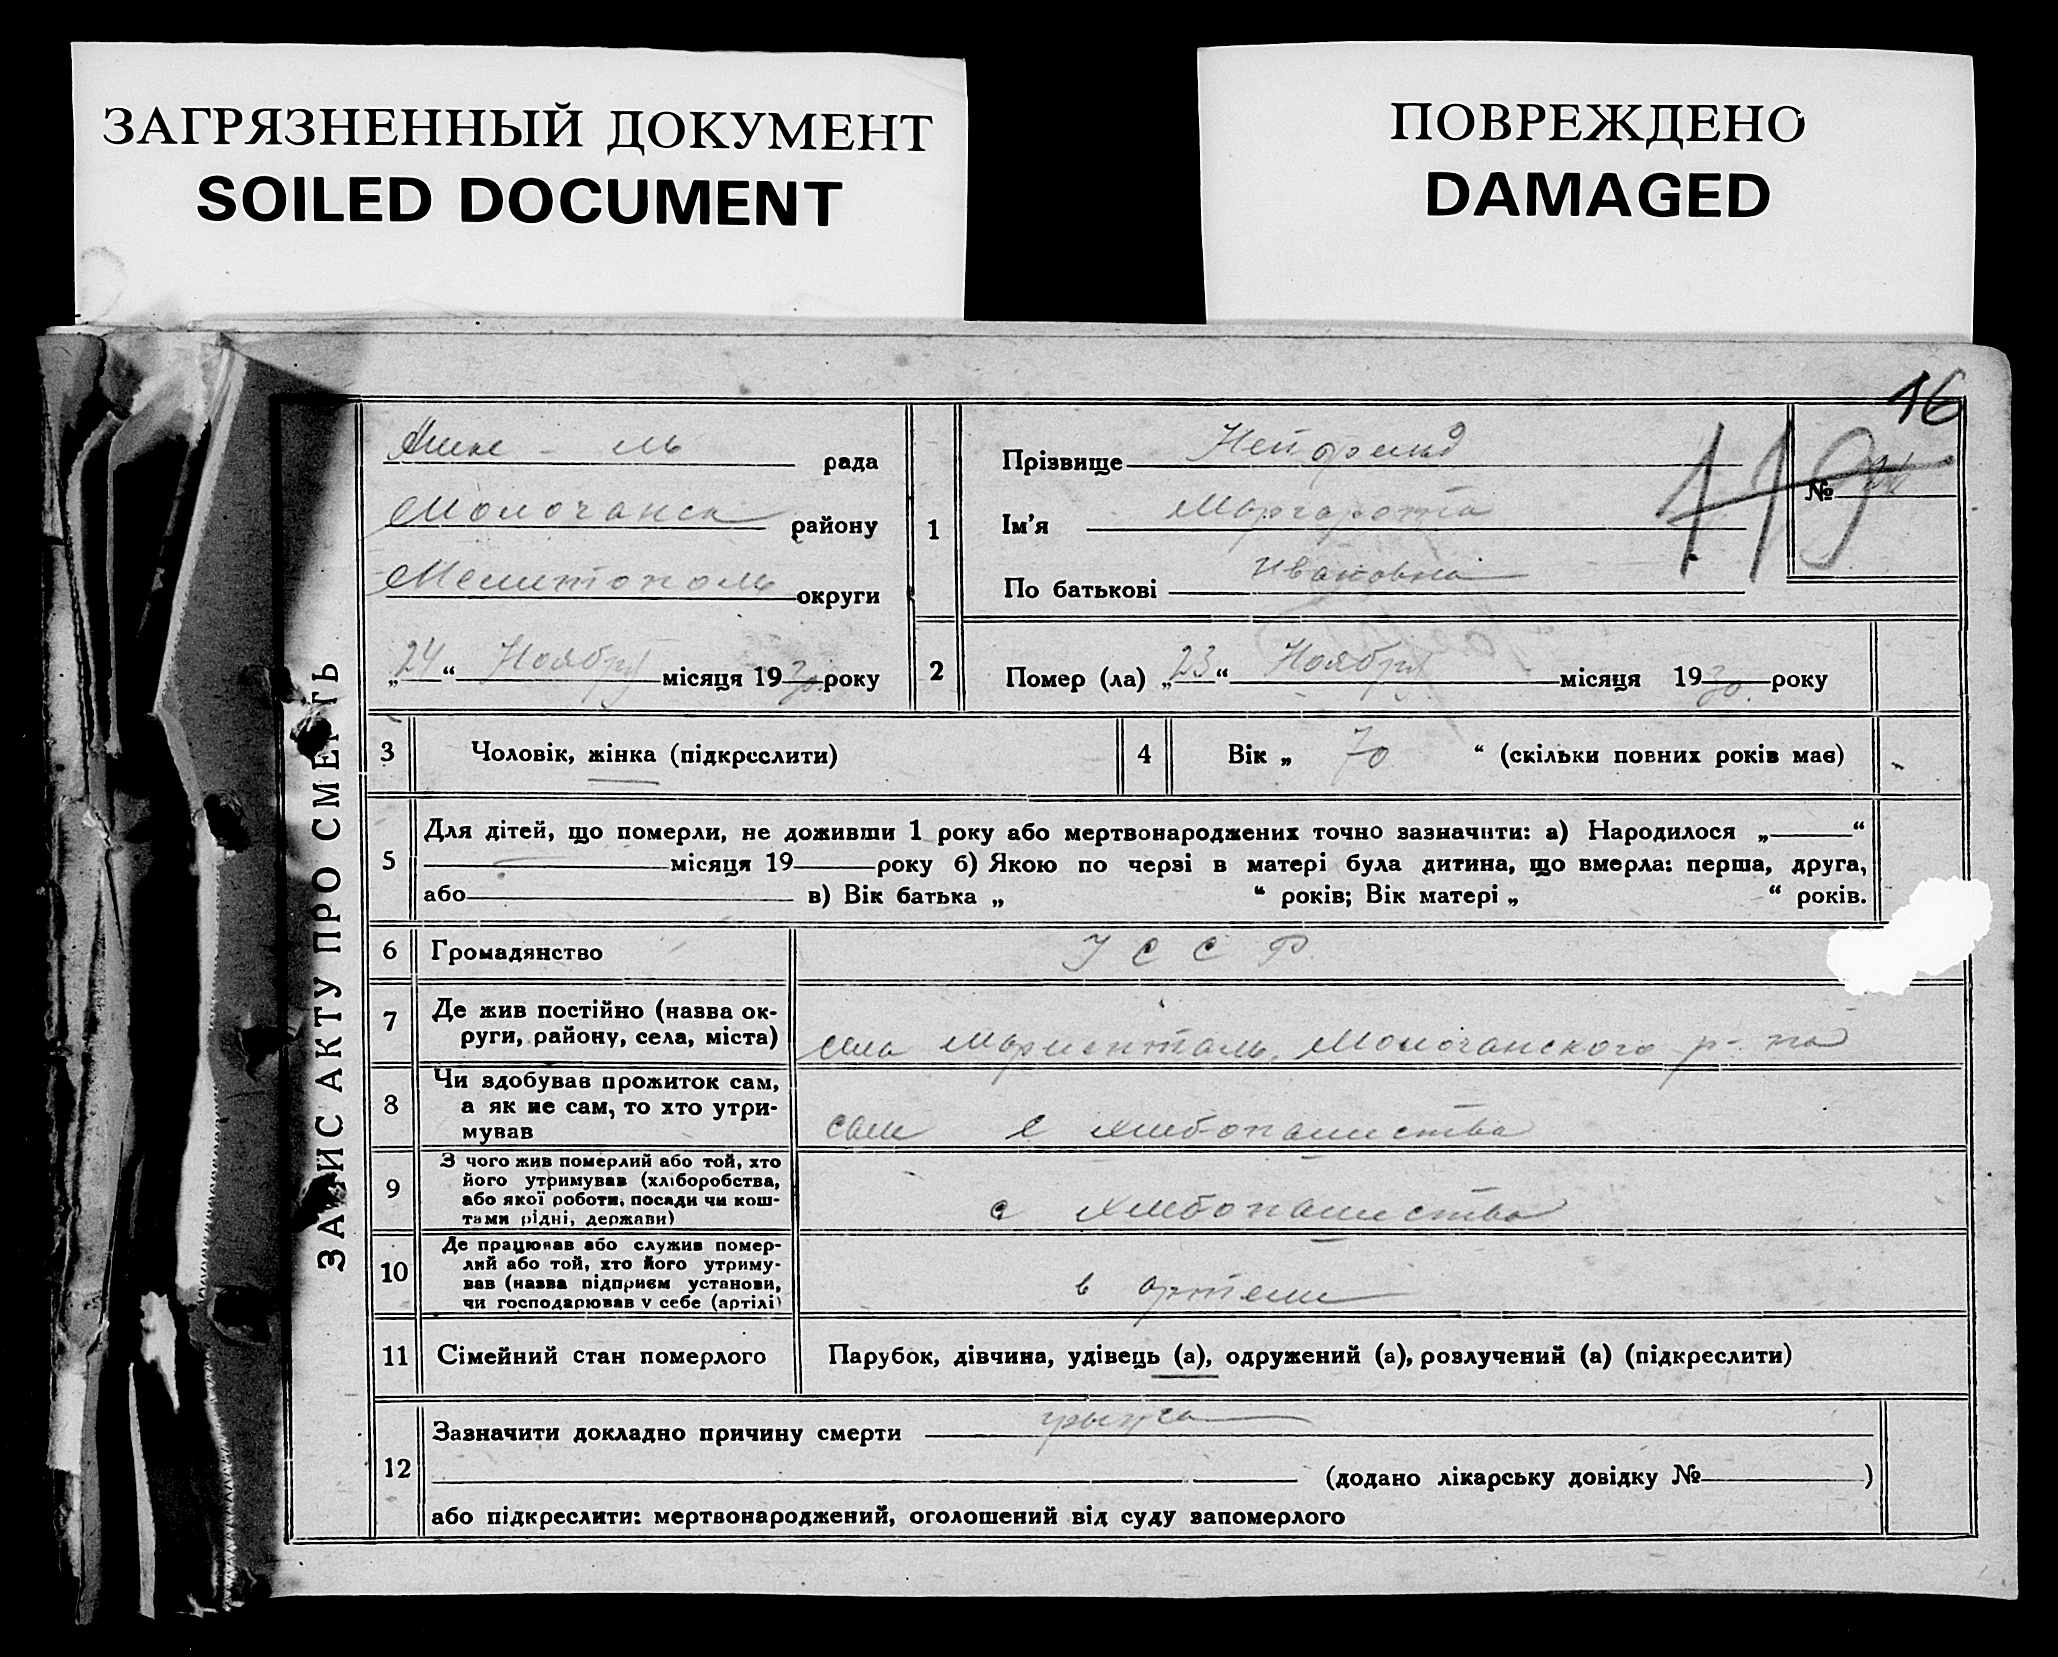 ЗАГРЯЗНЕННЫЙ ДОКУМЕНТ
SOILED DOCUMENT
ПОВРЕЖДЕНО
DAMAGED
16
119
ЗАПИС АКТУ ПРО СМЕРТЬ
рада
Молочанск району
Мелитополь округи
„24“ Ноября місяця 1930 року
1
Прізвище Нейфельд
Ім’я Маргарета
По батькові Ивановна
№
2
Помер (ла) „23“ Ноября місяця 1930. року
3 Чоловік, жінка (підкреслити)
4 Вік „ 70 “ (скільки повних років має)
5
Для дітей, що померли, не доживши 1 року або мертвонароджених точно зазначити: а) Народилося „ “
місяця 19 року б) Якою по черзі в матері була дитина, що вмерла: перша, друга,
або в) Вік батька „ “ років; Вік матері „ “ років.
6 Громадянство У С С Р.
7 Де жив постійно (назва ок-
руги, району, села, міста)
села Мариенталь, Молочанского р-на
8 Чи здобував прожиток сам,
а як не сам, то хто утри-
мував
сам с хлебопашества
9 З чого жив померлий або той, хто
його утримував (хліборобства,
або якої роботи, посади чи кош-
тами рідні, держави)
с хлебопашества
10 Де працював або служив помер-
лий або той, хто його утриму-
вав (назва підприєм установи,
чи господарював у себе (артілі)
в артели
11 Сімейний стан померлого Парубок, дівчина, удівець (а), одружений (а), розлучений (а) (підкреслити)
12 Зазначити докладно причину смерти грыжа
(додано лікарську довідку № )
або підкреслити: мертвонароджений, оголошений від суду запомерлого